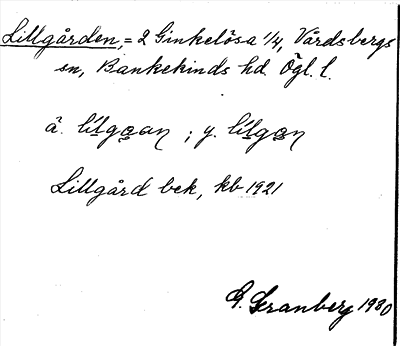 Lillgården, = 2 Ginkelösa 1/4, Vårdsbergs
sn, Bankekinds hd. Ögl. l.
ä. lilgɷan ; y. lilgɷn
Lillgård bek, kb 1921
G. Granberg 1930